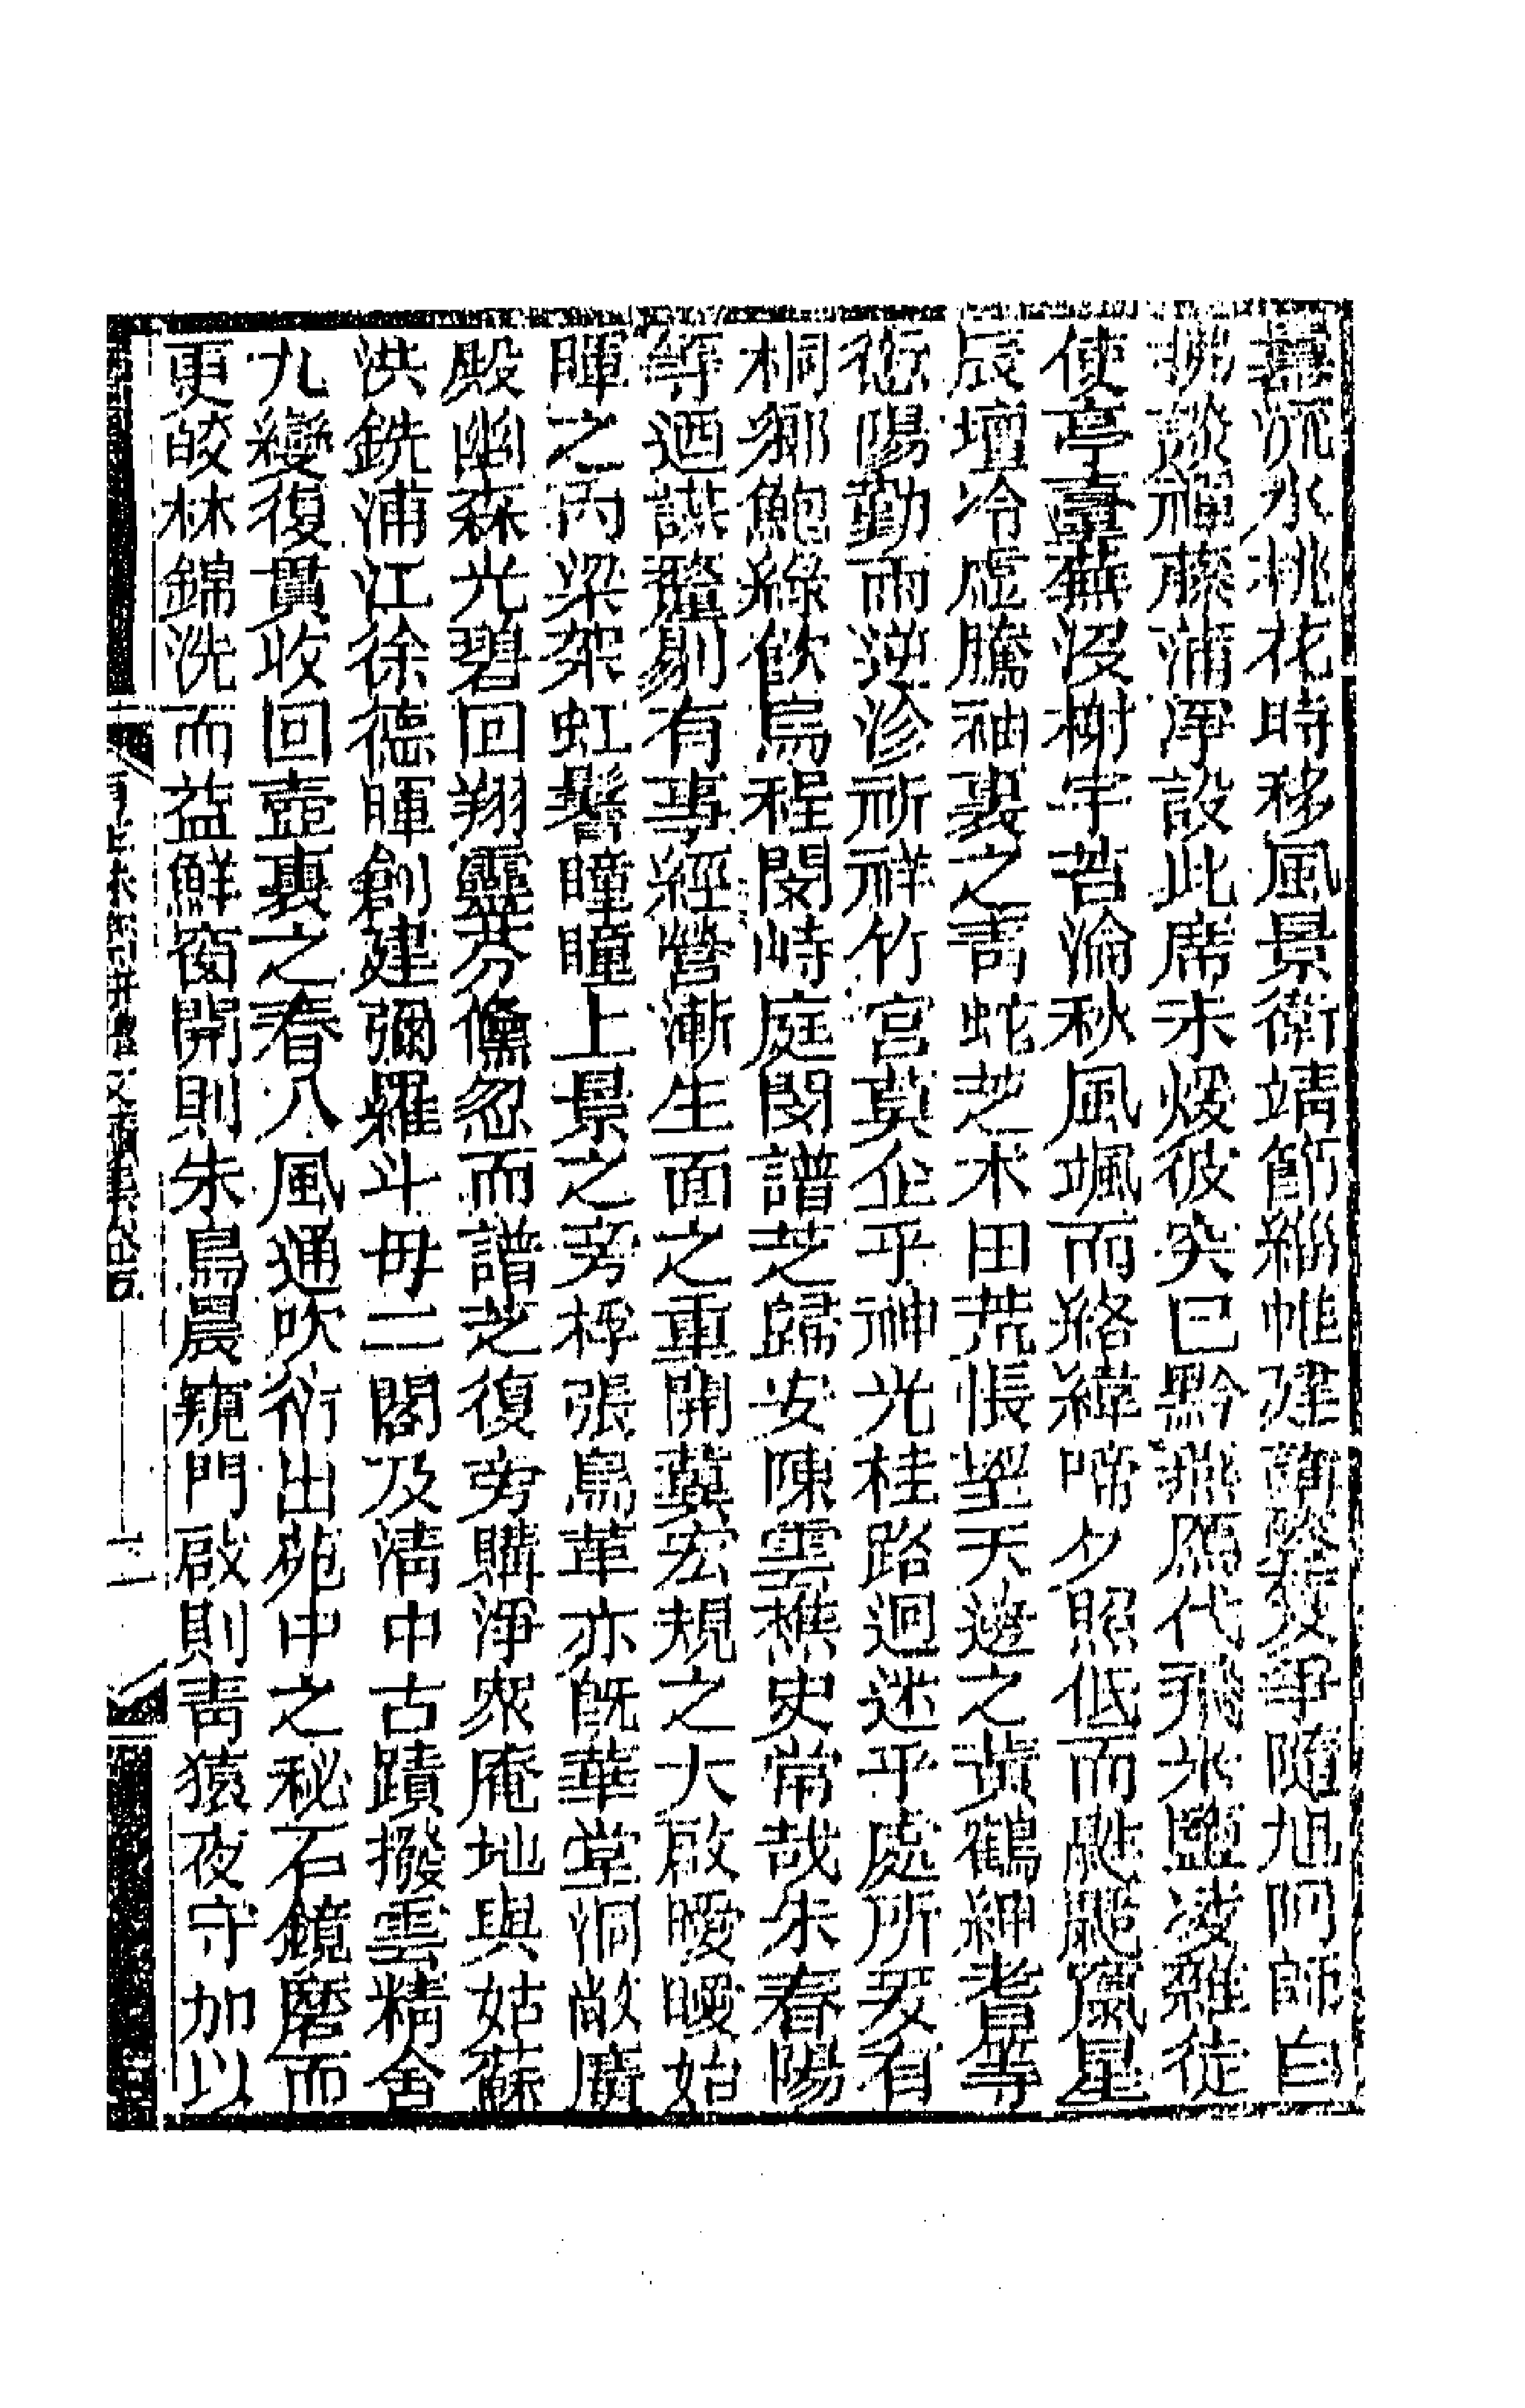 流水桃花時移風景衛靖節緇帷建爭隨旭阿師自
蒲淨設此席未煖彼突已黔燕鴈代飛氷鹽凌雜徒
使亭臺蕪沒榭宇莟淪秋風颯而絡緯啼夕照低而颰颺風星
辰壇冷虛騰袖裏之靑蛇芝朮田荒悵望天邊之黃鶴紳耆等
愆陽勤雨逆沴祈祥竹宮莫企乎神光桂路迴迷乎處所爰有
桐鄉鮑綠飲烏程閔峙庭閔譜芝歸安陳雲樵史常哉朱春陽
等迺謀釐剔有事經營漸生面之重開冀宏規之大啟曖曖始
暉之丙梁架虹鬐瞳瞳上景之旁桴張鳥革亦旣華堂洞敞廣
殿幽森光碧回翔靈芬儵忽而譜芝復旁購淨衆庵地與姑蘇
洪銑浦江徐德暉創建彌羅斗毋二閣及淸中古蹟撥雲精舍
九變復貫收回壺裏之春八風通吹衍出苑中之秘石鏡磨而
更皎林錦洗而益鮮窗開則朱鳥晨窺門啟則靑猿夜守加以
二